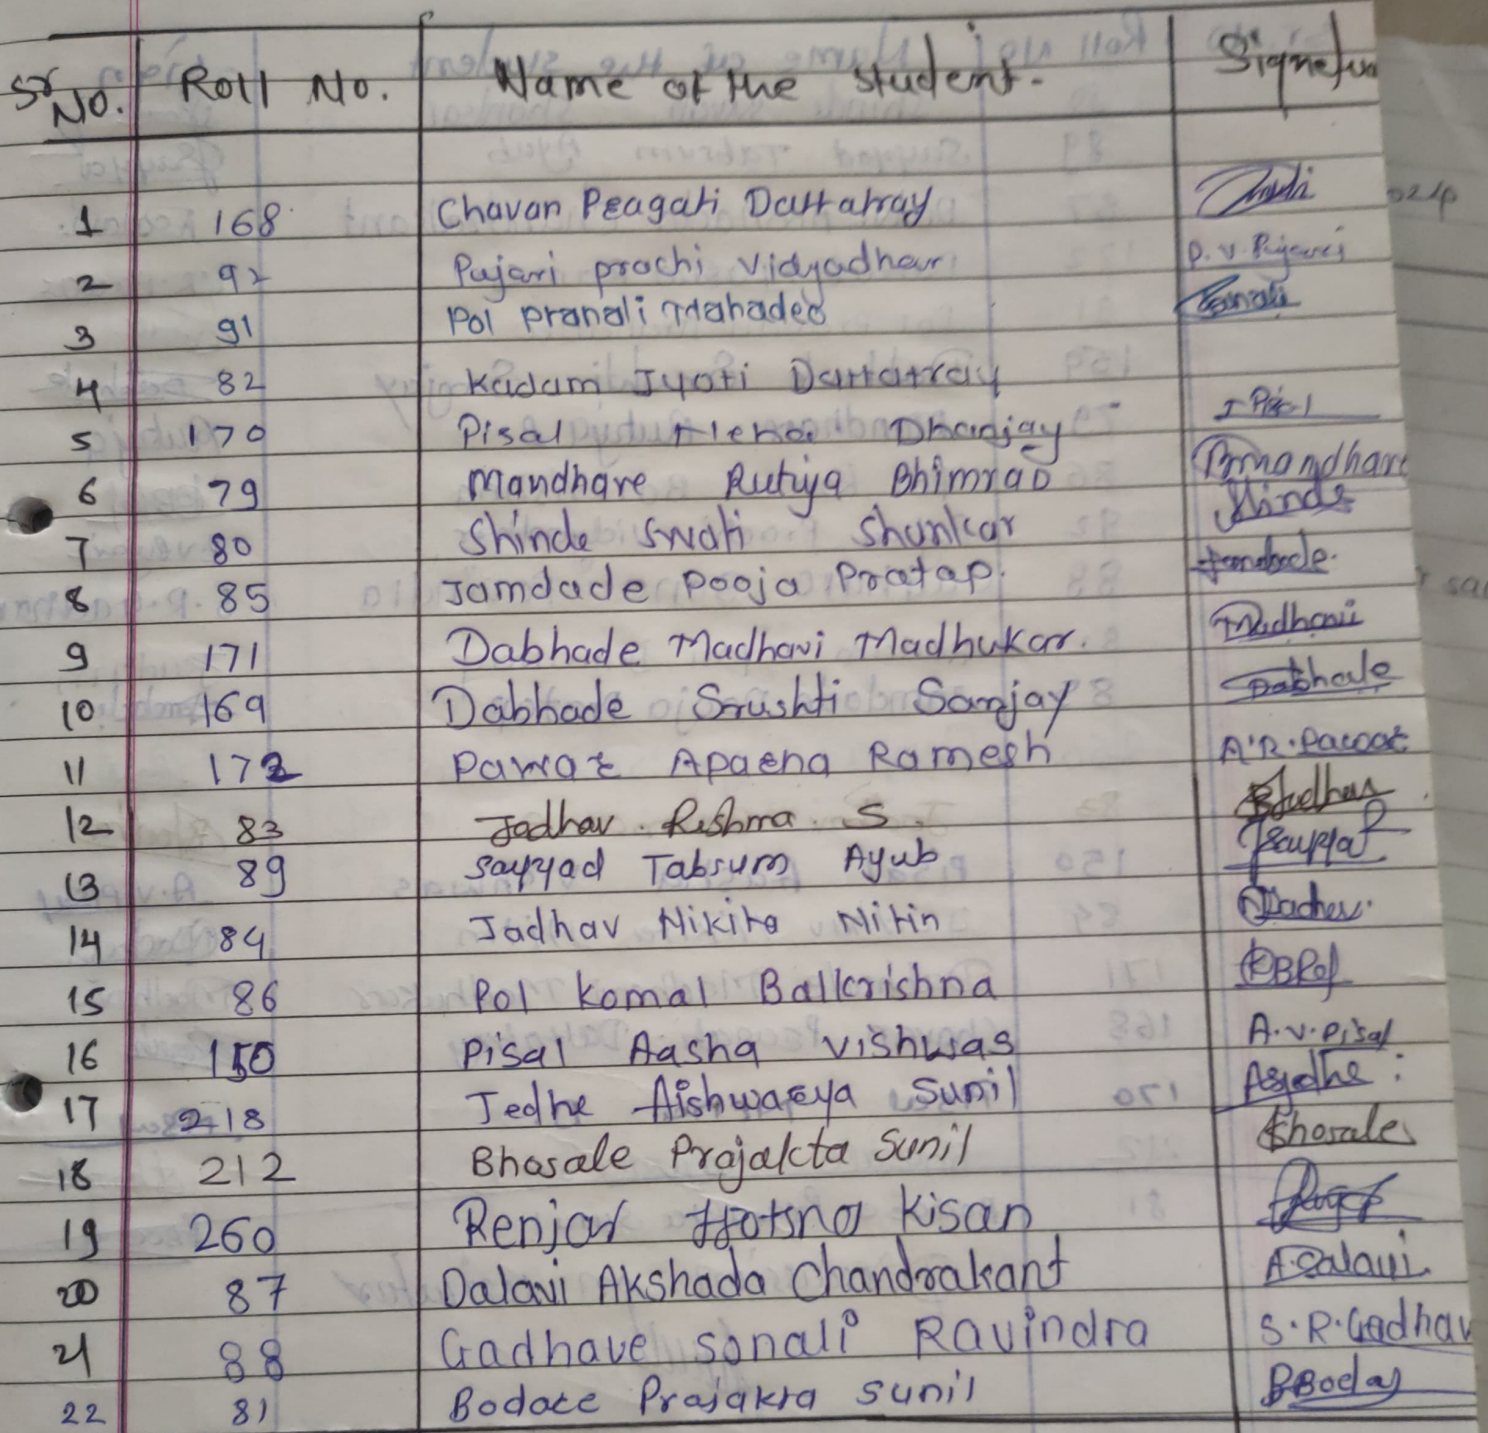 Sr No. Roll No. Name of the student. Signatu
1 168 Chavan Peagati Dattatray
2 92 Pujari prachi vidyadhar P. V. Pujari
3 91 Pol Pranali Mahadeo
4 82 Kadam Jyoti Dattatray
5 170 Pisal Dhanjay
6 79 Mandhare Rutuja Bhimrao Rmandhare
7 80 Shinde Swati Shankar Shinde
8 85 Jamdade Pooja Pratap. Jamdade.
9 171 Dabhade Madhavi Madhukar. Madhavi
10 169 Dabhade Srushti Sanjay Dabhade
11 172 Pawar Aparna Ramesh A.R.Pawar
12 83 Jadhav. Reshma. S.
13 89 Sayyad Tabsum Ayub
14 84 Jadhav Nikita Nitin
15 86 Pol Komal Balkrishna
16 150 Pisal Aasha Vishwas A.V.Pisal
17 218 Jedhe Aishwarya Sunil
18 212 Bhosale Prajakta Sunil Bhosale
19 260 Renjar Kisan
20 87 Dalavi Akshada Chandrakant
21 88 Gadhave Sonali Ravindra S.R.Gadhav
22 81 Bodare Prajakta Sunil